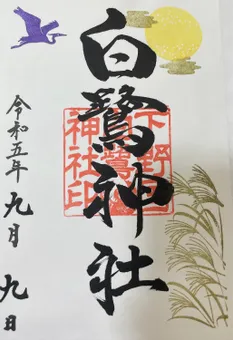 白鷺神社
下野國
白鷺
神社印
令和五年 九月 九日